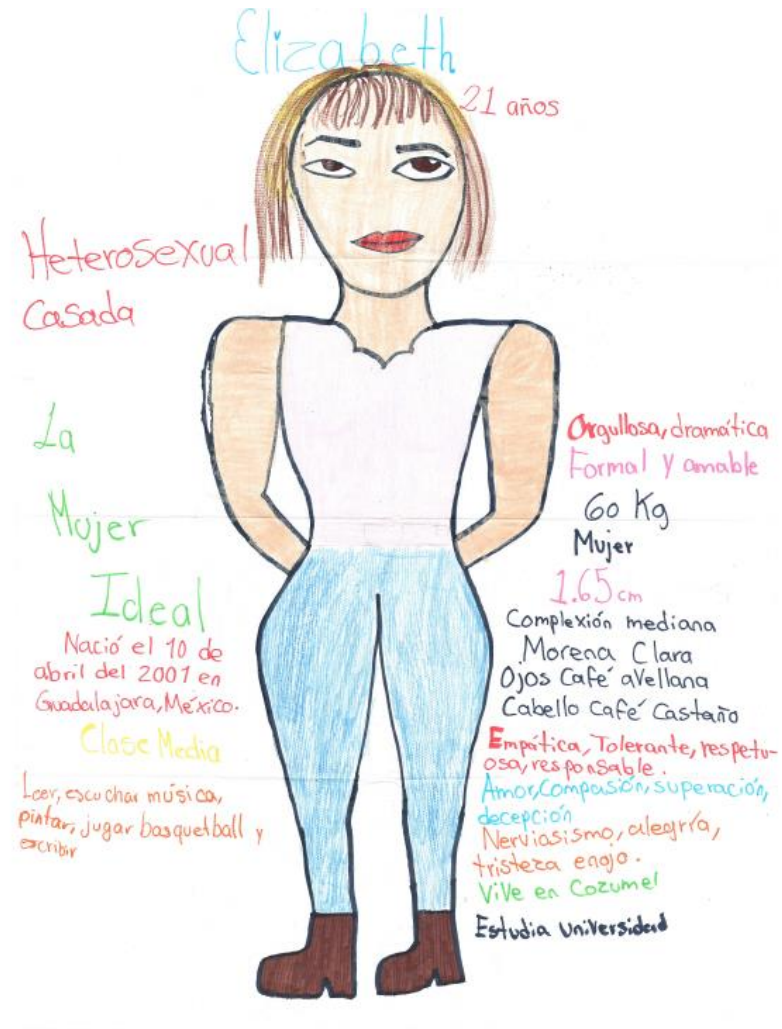 Elizabeth
21 años
Heterosexual
Casada
La
Mujer
Ideal
Nació el 10 de
abril del 2001 en
Guadalajara, México.
Clase Media
Leer, escuchar música,
pintar, jugar basquetball y
escribir
Orgullosa, dramática
Formal y amable
60 Kg
Mujer
1.65 cm
Complexión mediana
Morena Clara
Ojos Café avellana
Cabello Café Castaño
Empática, Tolerante, respetu-
osa, responsable.
Amor, Compasión, superación,
decepción
Nerviasismo, alegría,
tristeza enojo.
Vive en Cozumel
Estudia Universidad